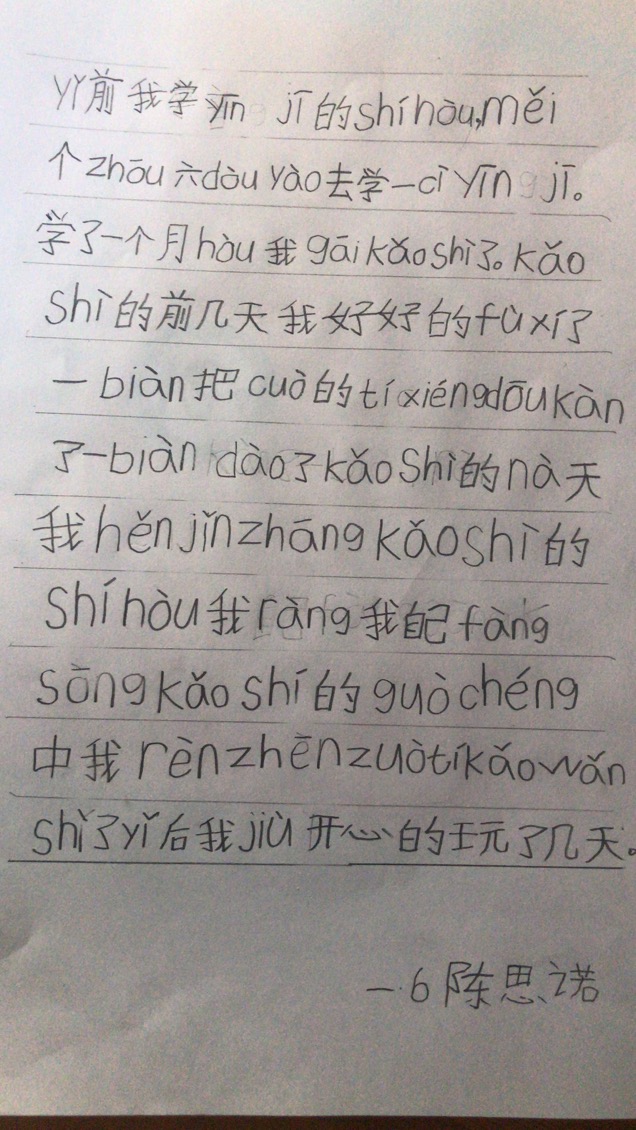 yǐ前我学yīn jī的shíhòu,měi
个zhōu六dòu yào去学一cì yīng jī。
学了一个月hòu我gāi kǎo shì了。kǎo
shì的前几天我好好的fù xí了
一biàn把cuò的tí xiéng dōu kàn
了一biàn dào了kǎo shì的nà天
我hěn jǐn zhāng kǎo shì的
shí hòu我ràng我自己fàng
sōng kǎo shí的guò chéng
中我rèn zhēn zuò tí kǎo wǎn
shǐ了yǐ后我jiù开心的玩了几天。
一.6陈思诺